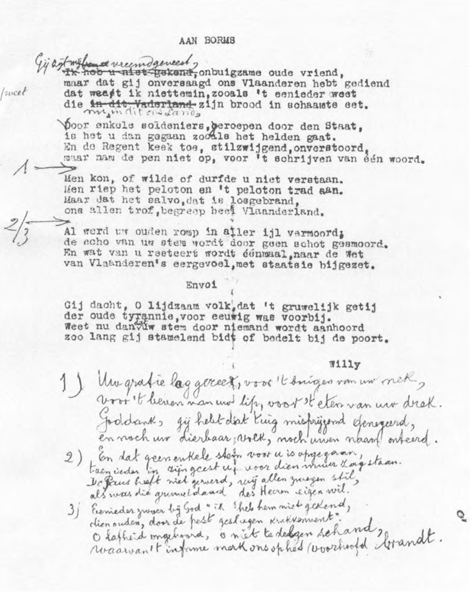 AAN BORMS
Gij zijt mij vreemd geweest,
Ik heb u niet gekend, onbuigzame oude vriend,
maar dat gij onversaagd ons Vlaanderen hebt gediend
dat weet ik niettemin, zooals 't eenieder weet
die in dit Vaderland zijn brood in schaamte eet.
nu, in dit ons Land,
Door enkele soldeniers, geroepen door den Staat,
is het u dan gegaan zooals het helden gaat.
En de Regent keek toe, stilzwijgend, onverstoord,
maar nam de pen niet op, voor 't schrijven van één woord.
1
Men kon, of wilde of durfde u niet verstaan.
Men riep het peloton en 't peloton trad aan.
Maar dat het salvo, dat is losgebrand,
ons allen trof, begreep heel Vlaanderland.
2/3
Al werd uw ouden romp in aller ijl vermoord,
de echo van uw stem wordt door geen schot gesmoord.
En wat van u resteert wordt éénmaal, naar de Wet
van Vlaanderen's eergevoel, met staatsie bijgezet.
Envoi
Gij dacht, O lijdzaam volk, dat 't gruwelijk getij
der oude tyrannie, voor eeuwig was voorbij.
Weet nu dat uw stem door niemand wordt aanhoord
zoo lang gij stamelend bidt of bedelt bij de poort.
Willy
1) Uw gratie lag gereed, voor 't buigen van uw nek,
voor 't beven van uw lip, voor 't eten van uw drek.
Goddank, gij hebt dat tuig misprijzend genegeerd,
en noch uw dierbaar volk, noch uwen naam onteerd.
2) En dat geen enkele stem voor u is opgegaan,
toen ieder in zijn geest u voor dien muur zag staan.
De Paus heeft niet geweend, wij allen zwegen stil,
als was die gruweldaad des Heeren eigen wil.
3) Eenieder zwoer bij God "ik heb hem niet gekend,
dien ouden, door de pest geslagen
O lafheid ongehoord, o niet te delgen schand,
waarvan 't infame merk ons op het voorhoofd brandt.